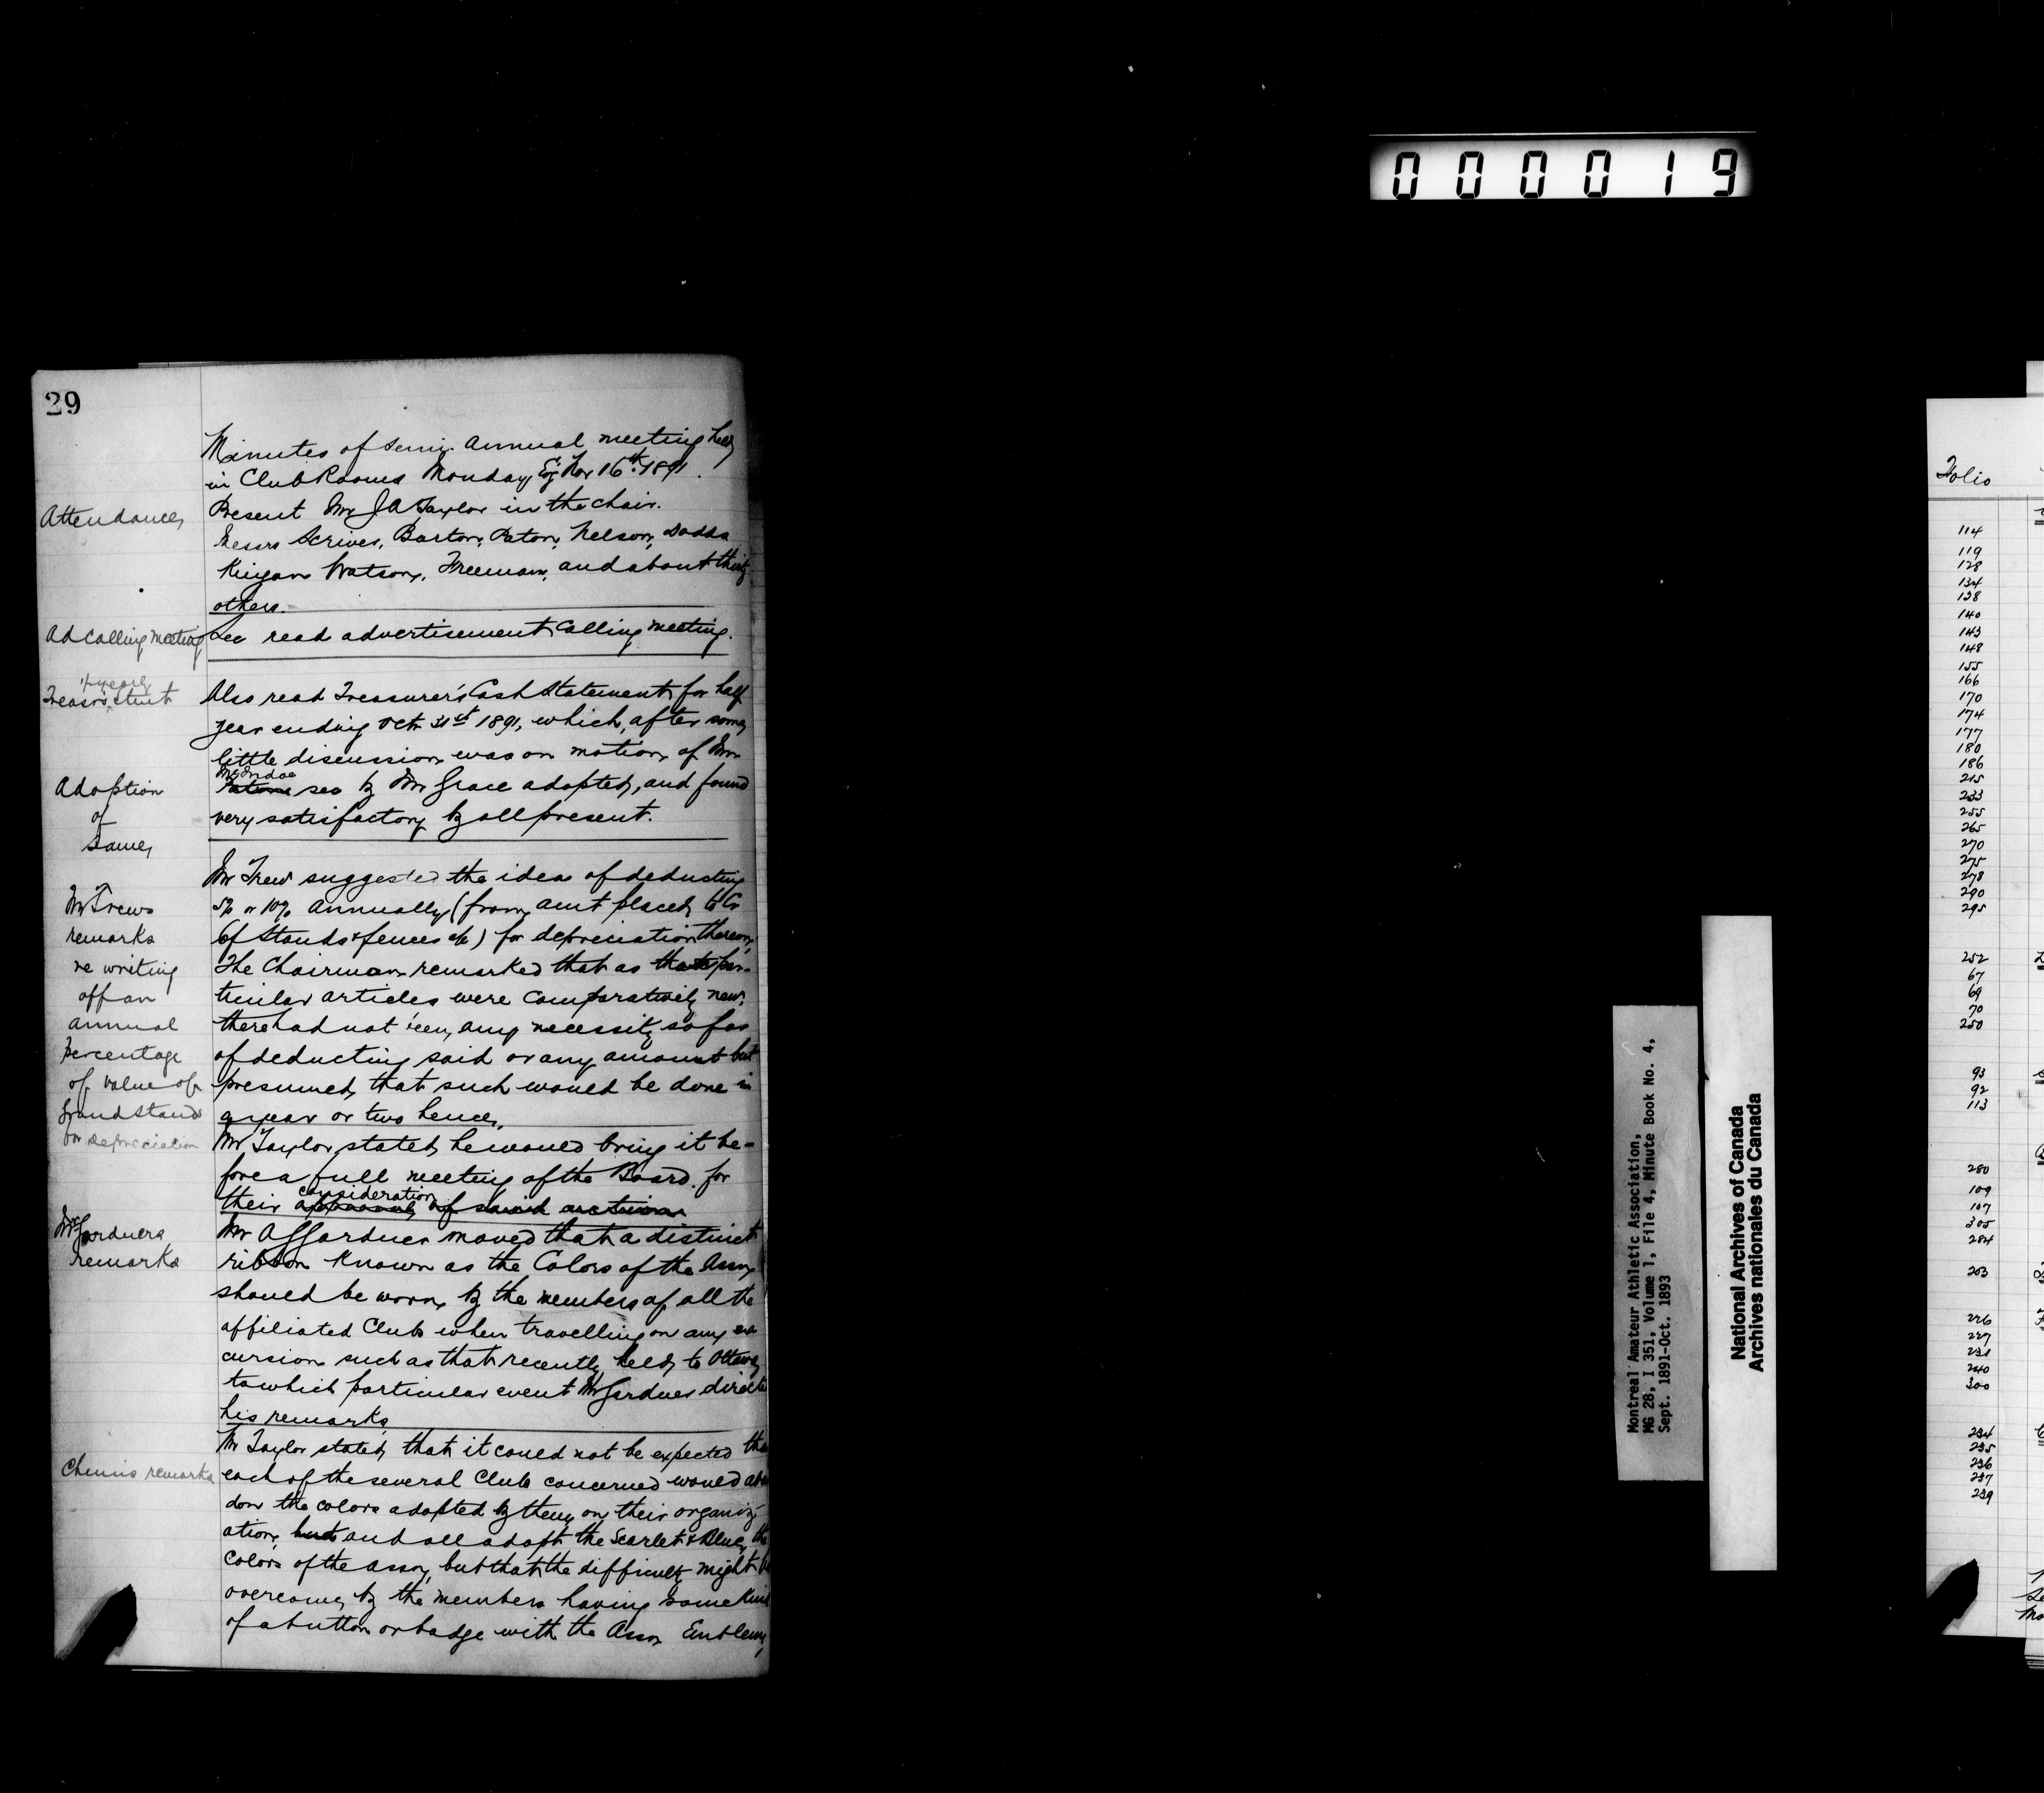 000019
29
Minutes of Semi Annual meeting held
in Club Rooms Monday Evg Nov 16th 1891.
Attendance
Present Mr J A Taylor in the chair.
Messrs Scriver, Barton, Paton, Nelson, Dodds
Kingan Watson, Freeman, and about thirty
others.
Ad calling meeting
Sec read advertisement calling meeting.
½ yearly
Treasr's stmt
Also read Treasurer's Cash Statement for half
year ending Octr 31st 1891, which, after some
little discussion was on motion of Mr
Paton sec by Mr Grace adopted, and found
very satisfactory by all present.
Adoption
of
Same
Mr Trew suggested the idea of deducting
5% or 10% annually (from amt placed to Cr
of Stands & fences a/c) for depreciation thereon,
The Chairman remarked that as par-
ticular articles were comparatively new,
there had not been any necessity so far
of deducting said or any amount but
presumed that such would be done in
a year or two hence.
Mr Trews
remarks
re writing
off an
annual
percentage
of value of
Grand Stand
for depreciation
Mr Taylor stated he would bring it be-
fore a full meeting of the Board for
consideration
their approval of said action
Mr Gardners
remarks
Mr A G Gardner moved that a distinct
ribbon known as the Colors of the Assn
should be worn by the members of all the
affiliated Clubs when travelling on any ex
cursion such as that recently held to Ottawa
to which particular event Mr Gardner direct
his remarks
Chmns remarks
Mr Taylor stated that it could not be expected tha
each of the several Clubs concerned would aban
don the colors adopted by them on their organiz-
ation, but and all adopt the Scarlet & Blue, the
colors of the assn, but that the difficulty might be
overcome by the members having some kind
of a button or badge with the Assn Emblem,
Montreal Amateur Athletic Association,
MG 28, I 351, Volume 1, File 4, Minute Book No. 4,
Sept. 1891-Oct. 1893
National Archives of Canada
Archives nationales du Canada
Folio
114
119
128
134
138
140
143
148
155
166
170
174
177
180
186
215
233
255
265
270
275
278
290
295
252
67
69
70
250
93
92
113
280
109
107
305
284
203
226
227
231
240
300
234
235
236
237
239